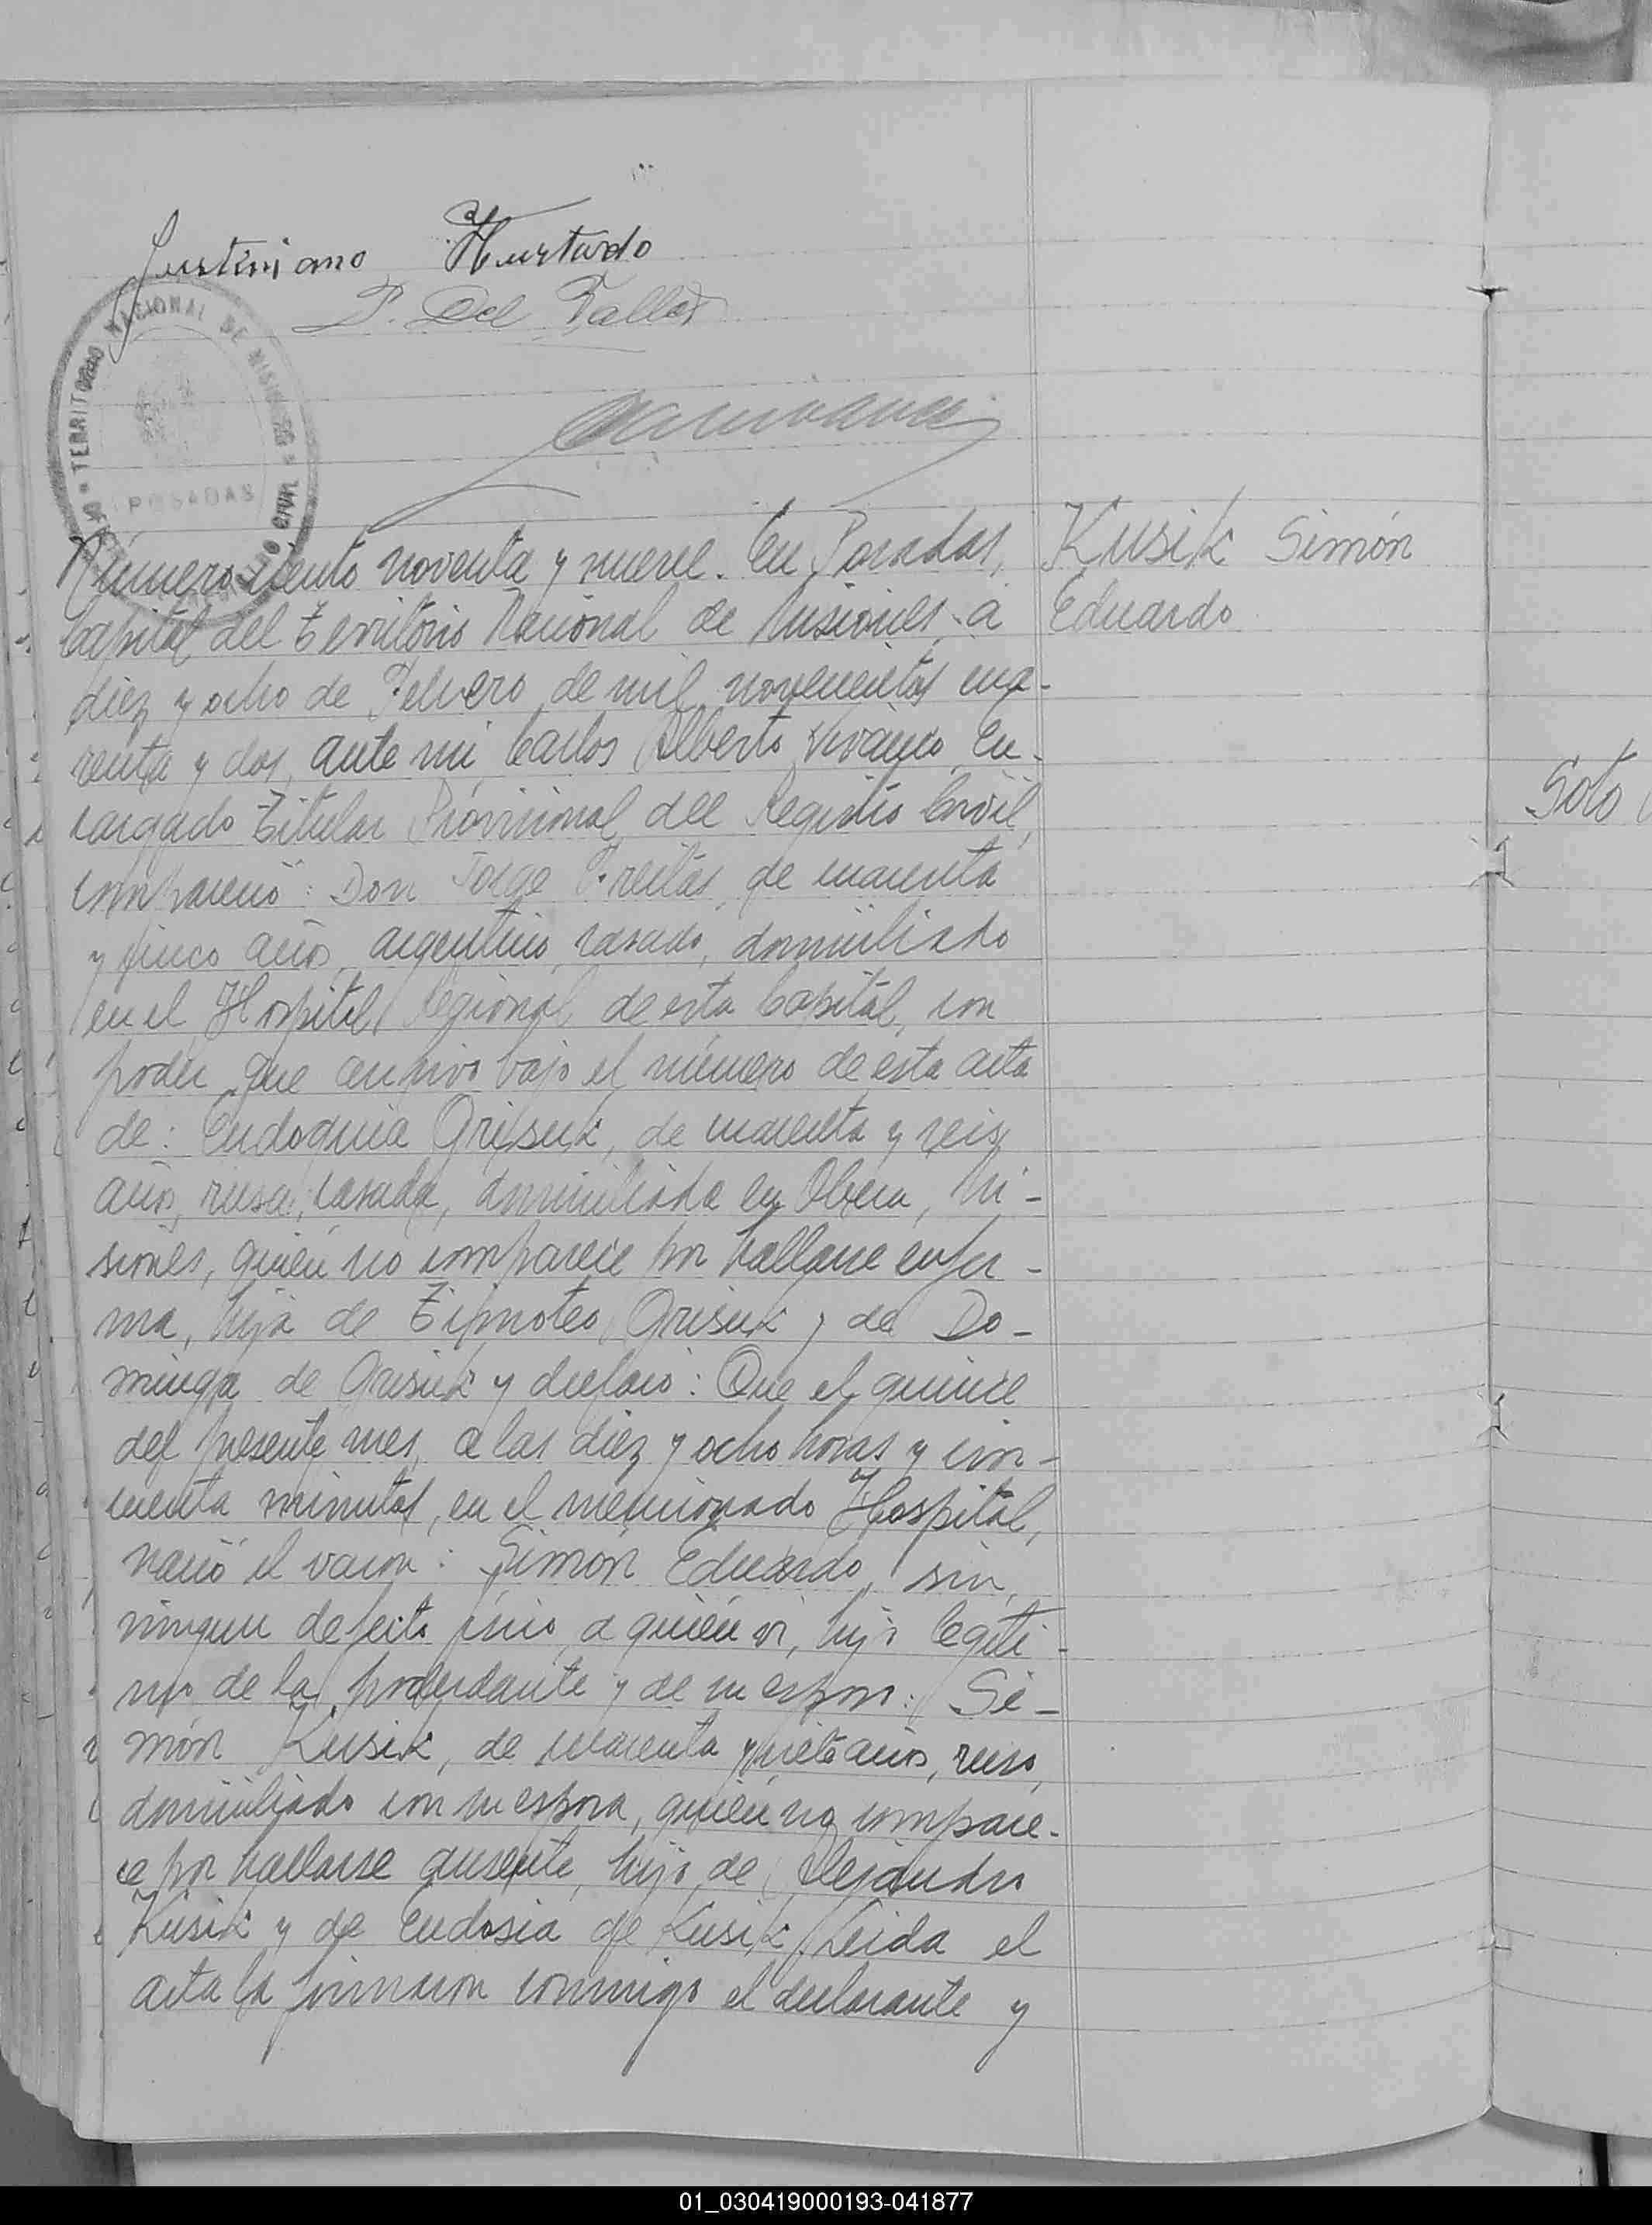 Justiniano Hurtado
P. Del Valle
TERRITORIO NACIONAL DE MISIONES
POSADAS
CIVIL
Número ciento noventa y nueve. En Posadas,
Kusik Simón
Capital del Territorio Nacional de Misiones, a
Eduardo
diez y ocho de Febrero de mil novecientos cua-
renta y dos, ante mi Carlos Alberto Vivanco, En-
cargado Titular Provisional del Registro Civil,
Soto
compareció: Don Jorge Freitas, de cuarenta
y cinco años, argentino, casado, domiciliado
en el Hospital Regional de esta Capital, con
poder que archivo bajo el número de esta acta
de: Eudoquia Grisuk, de cuarenta y seis
años, rusa, casada, domiciliada en Obera, Mi-
siones, quién no comparece por hallarse enfer-
ma, hija de Tipnoteo Grisuk y de Do-
minga de Grisuk y declaró: Que el quince
del presente mes, a las diez y ocho horas y cin-
cuenta minutos, en el mencionado Hospital,
nació el varon: Simón Eduardo, sin
ningun defecto físico, a quién vi, hijo legíti-
mo de la poderdante y de su esposo: Si-
món Kusik, de cuarenta y siete años, ruso,
domiciliado con su esposa, quién no compare-
ce por hallarse ausente, hijo de Alejandro
Kusik y de Eudosia de Kusik. Leida el
acta la firmaron conmigo el declarante y
01_030419000193-041877